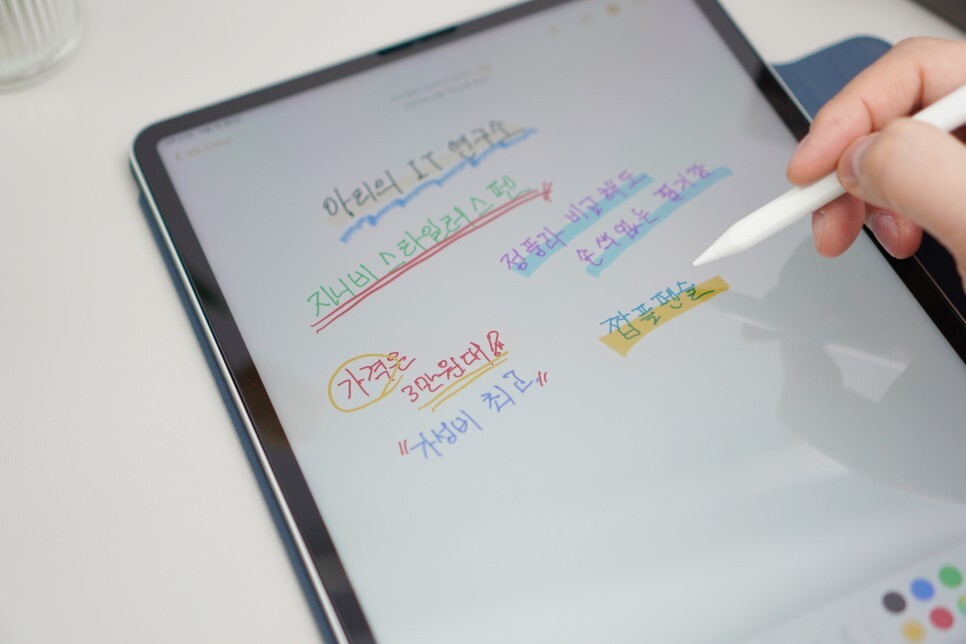 아리의 IT 연구소
지니비 스타일러스 펜
정품과 비교해도
손색없는 필기감
짭플펜슬
가격은
3만원대!!
"가성비 최고"